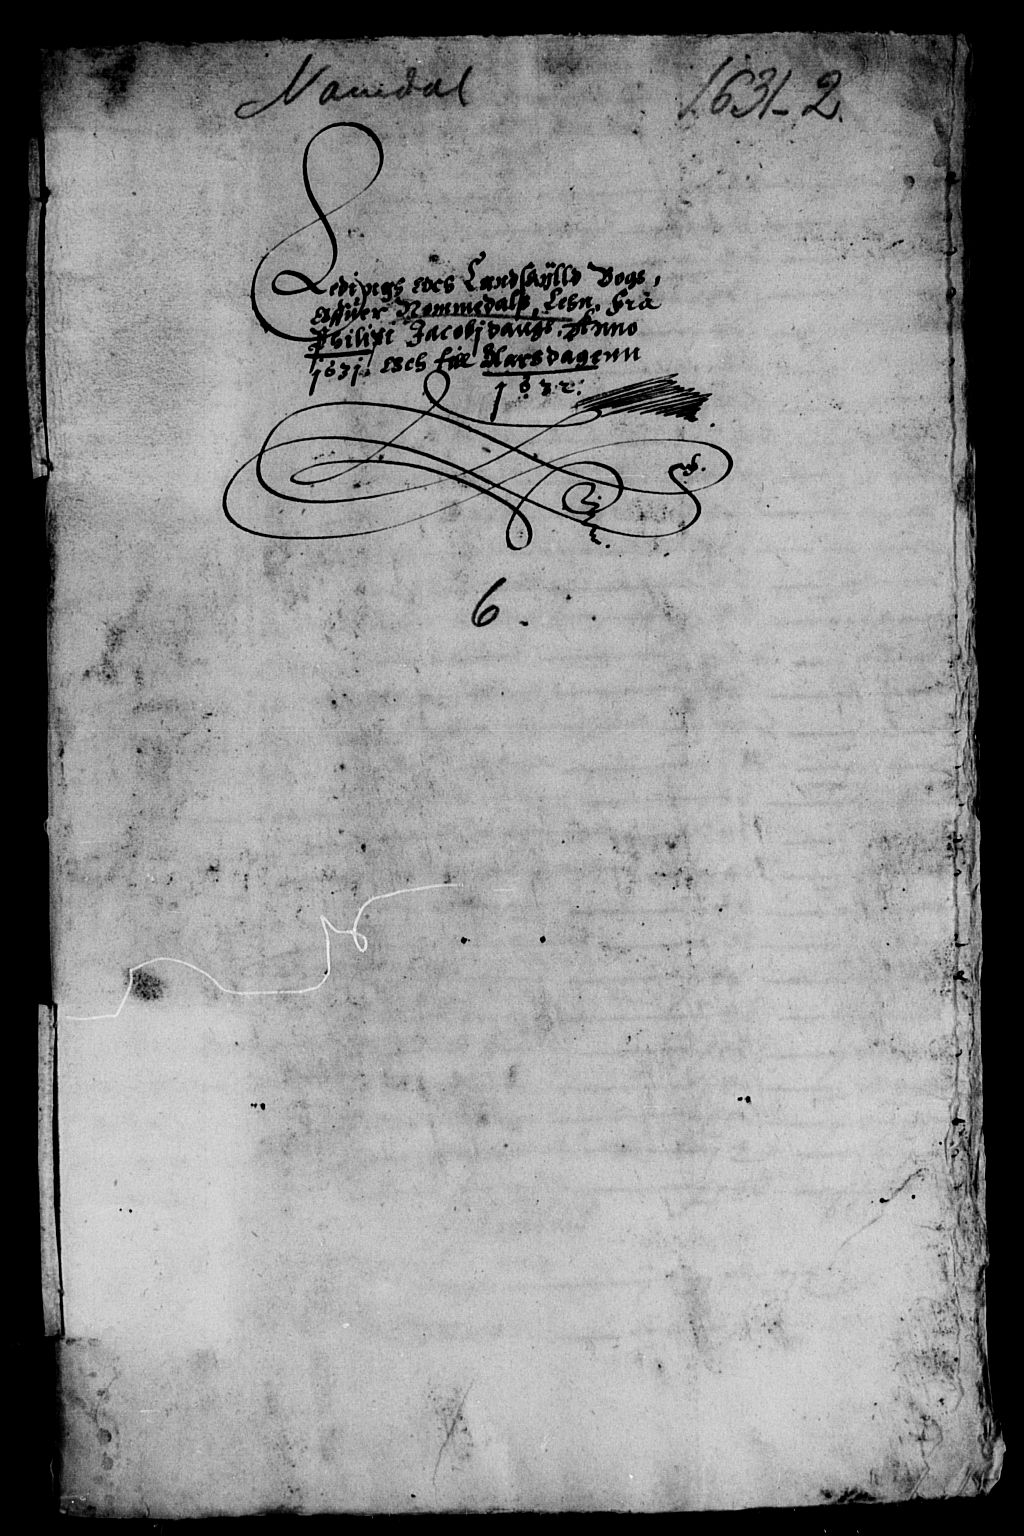 Namdal 1631-2.
Ledings och Landskÿlld Bogs,
offuer Nommedals Lehn, Frà
Philippi Jacobj daugs. Anno
1631. och till Aarsdagenn
1632.
6.